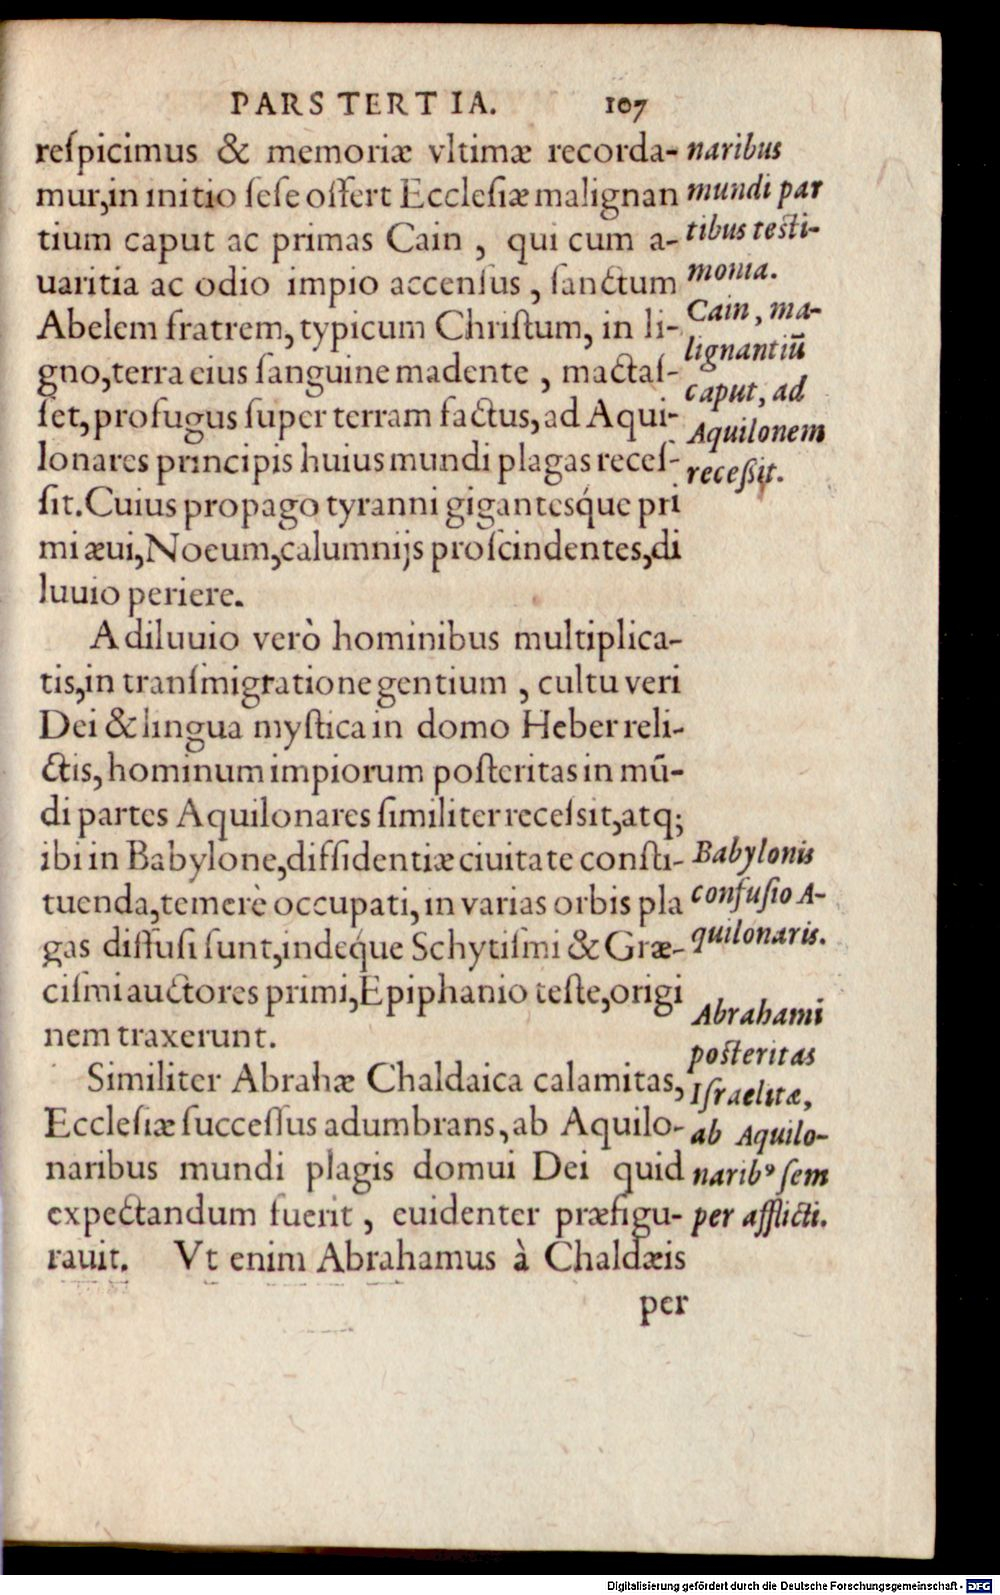 PARS TERTIA. 107
reſpicimus & memoriæ vltimæ recorda-
mur,in initio ſeſe offert Eccleſiæ malignan
tium caput ac primas Cain , qui cum a-
uaritia ac odio impio accenſus , ſanctum
Abelem fratrem, typicum Chriſtum, in li-
gno,terra eius ſanguine madente , mactaſ-
ſet,profugus ſuper terram factus,ad Aqui-
lonares principis huius mundi plagas receſ-
ſit.Cuius propago tyranni gigantesq́ue pri
mi æui,Noeum,calumnijs proſcindentes,di
luuio periere.
A diluuio verò hominibus multiplica-
tis,in tranſmigratione gentium , cultu veri
Dei & lingua myſtica in domo Heber reli-
ctis, hominum impiorum poſteritas in mū-
di partes Aquilonares ſimiliter receſsit,atq;
ibi in Babylone,diffidentiæ ciuitate conſti-
tuenda,temerè occupati, in varias orbis pla
gas diffuſi ſunt,indeq́ue Schytiſmi & Græ-
ciſmi auctores primi,Epiphanio teſte,origi
nem traxerunt.
Similiter Abrahæ Chaldaica calamitas,
Eccleſiæ ſucceſſus adumbrans, ab Aquilo-
naribus mundi plagis domui Dei quid
expectandum fuerit , euidenter præfigu-
rauit. Vt enim Abrahamus à Chaldæis
per
naribus
mundi par
tibus teſti-
monia.
Cain, ma-
lignantiū
caput, ad
Aquilonem
receßit.
Babylonis
confuſio A-
quilonaris.
Abrahami
poſteritas
Iſraelitæ,
ab Aquilo-
naribꝰ ſem
per afflicti.
Digitalisierung gefördert durch die Deutsche Forschungsgemeinschaft - DFG